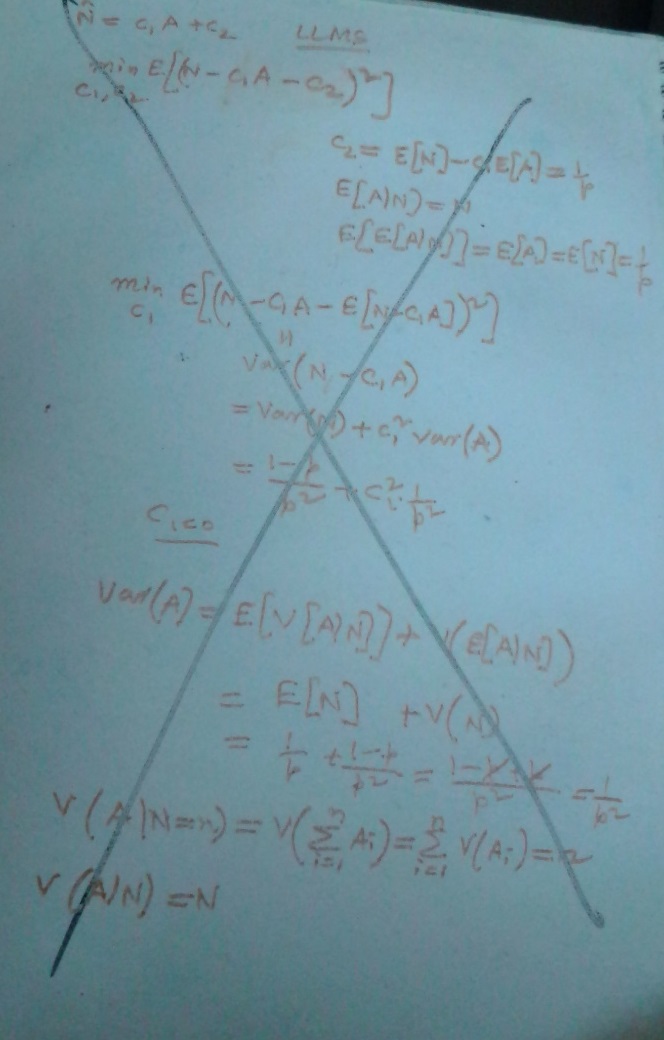 N̂ = c₁A + c₂ LLMS
min E[(N - c₁A - c₂)²]
c₁, c₂
c₂ = E[N] - c₁E[A] = 1/p
E[A|N) = N
E[E[A|N]] = E[A] = E[N] = 1/p
min E[(N - c₁A - E[N - c₁A])²]
c₁
"
Var(N - c₁A)
= Var(N) + c₁² var(A)
= (1-p)/p² + c₁² · 1/p²
c₁ = 0
Var(A) = E[V[A|N]] + V(E[A|N])
= E[N] + V(N)
= 1/p + (1-p)/p² = (1-p+p)/p² = 1/p²
V(A|N=n) = V(∑ⁿᵢ₌₁ Aᵢ) = ∑ⁿᵢ₌₁ V(Aᵢ) = n
V(A|N) = N